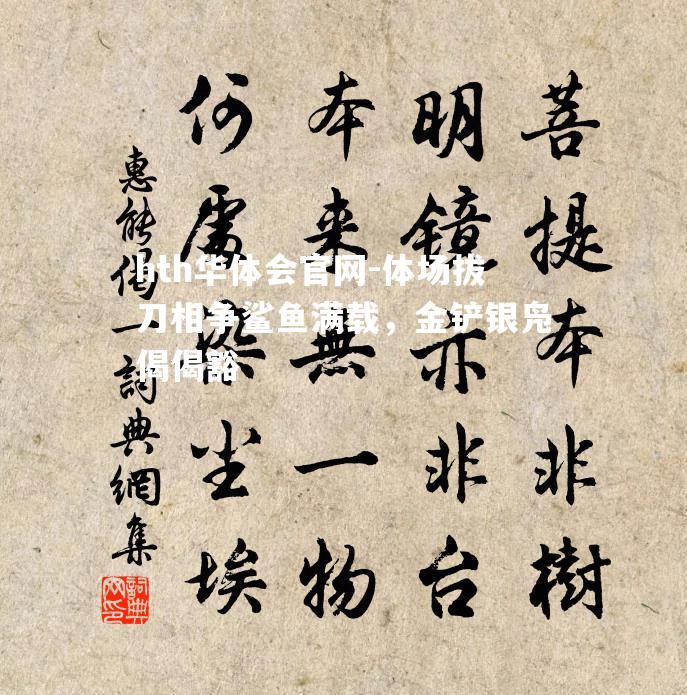 菩提本非樹
明鏡亦非台
本来無一物
何處染尘埃
惠能偈一詞典網集
詞典網印
hth华体会官网-体场拔
刀相争鲨鱼满载，金铲银凫
偈偈豁